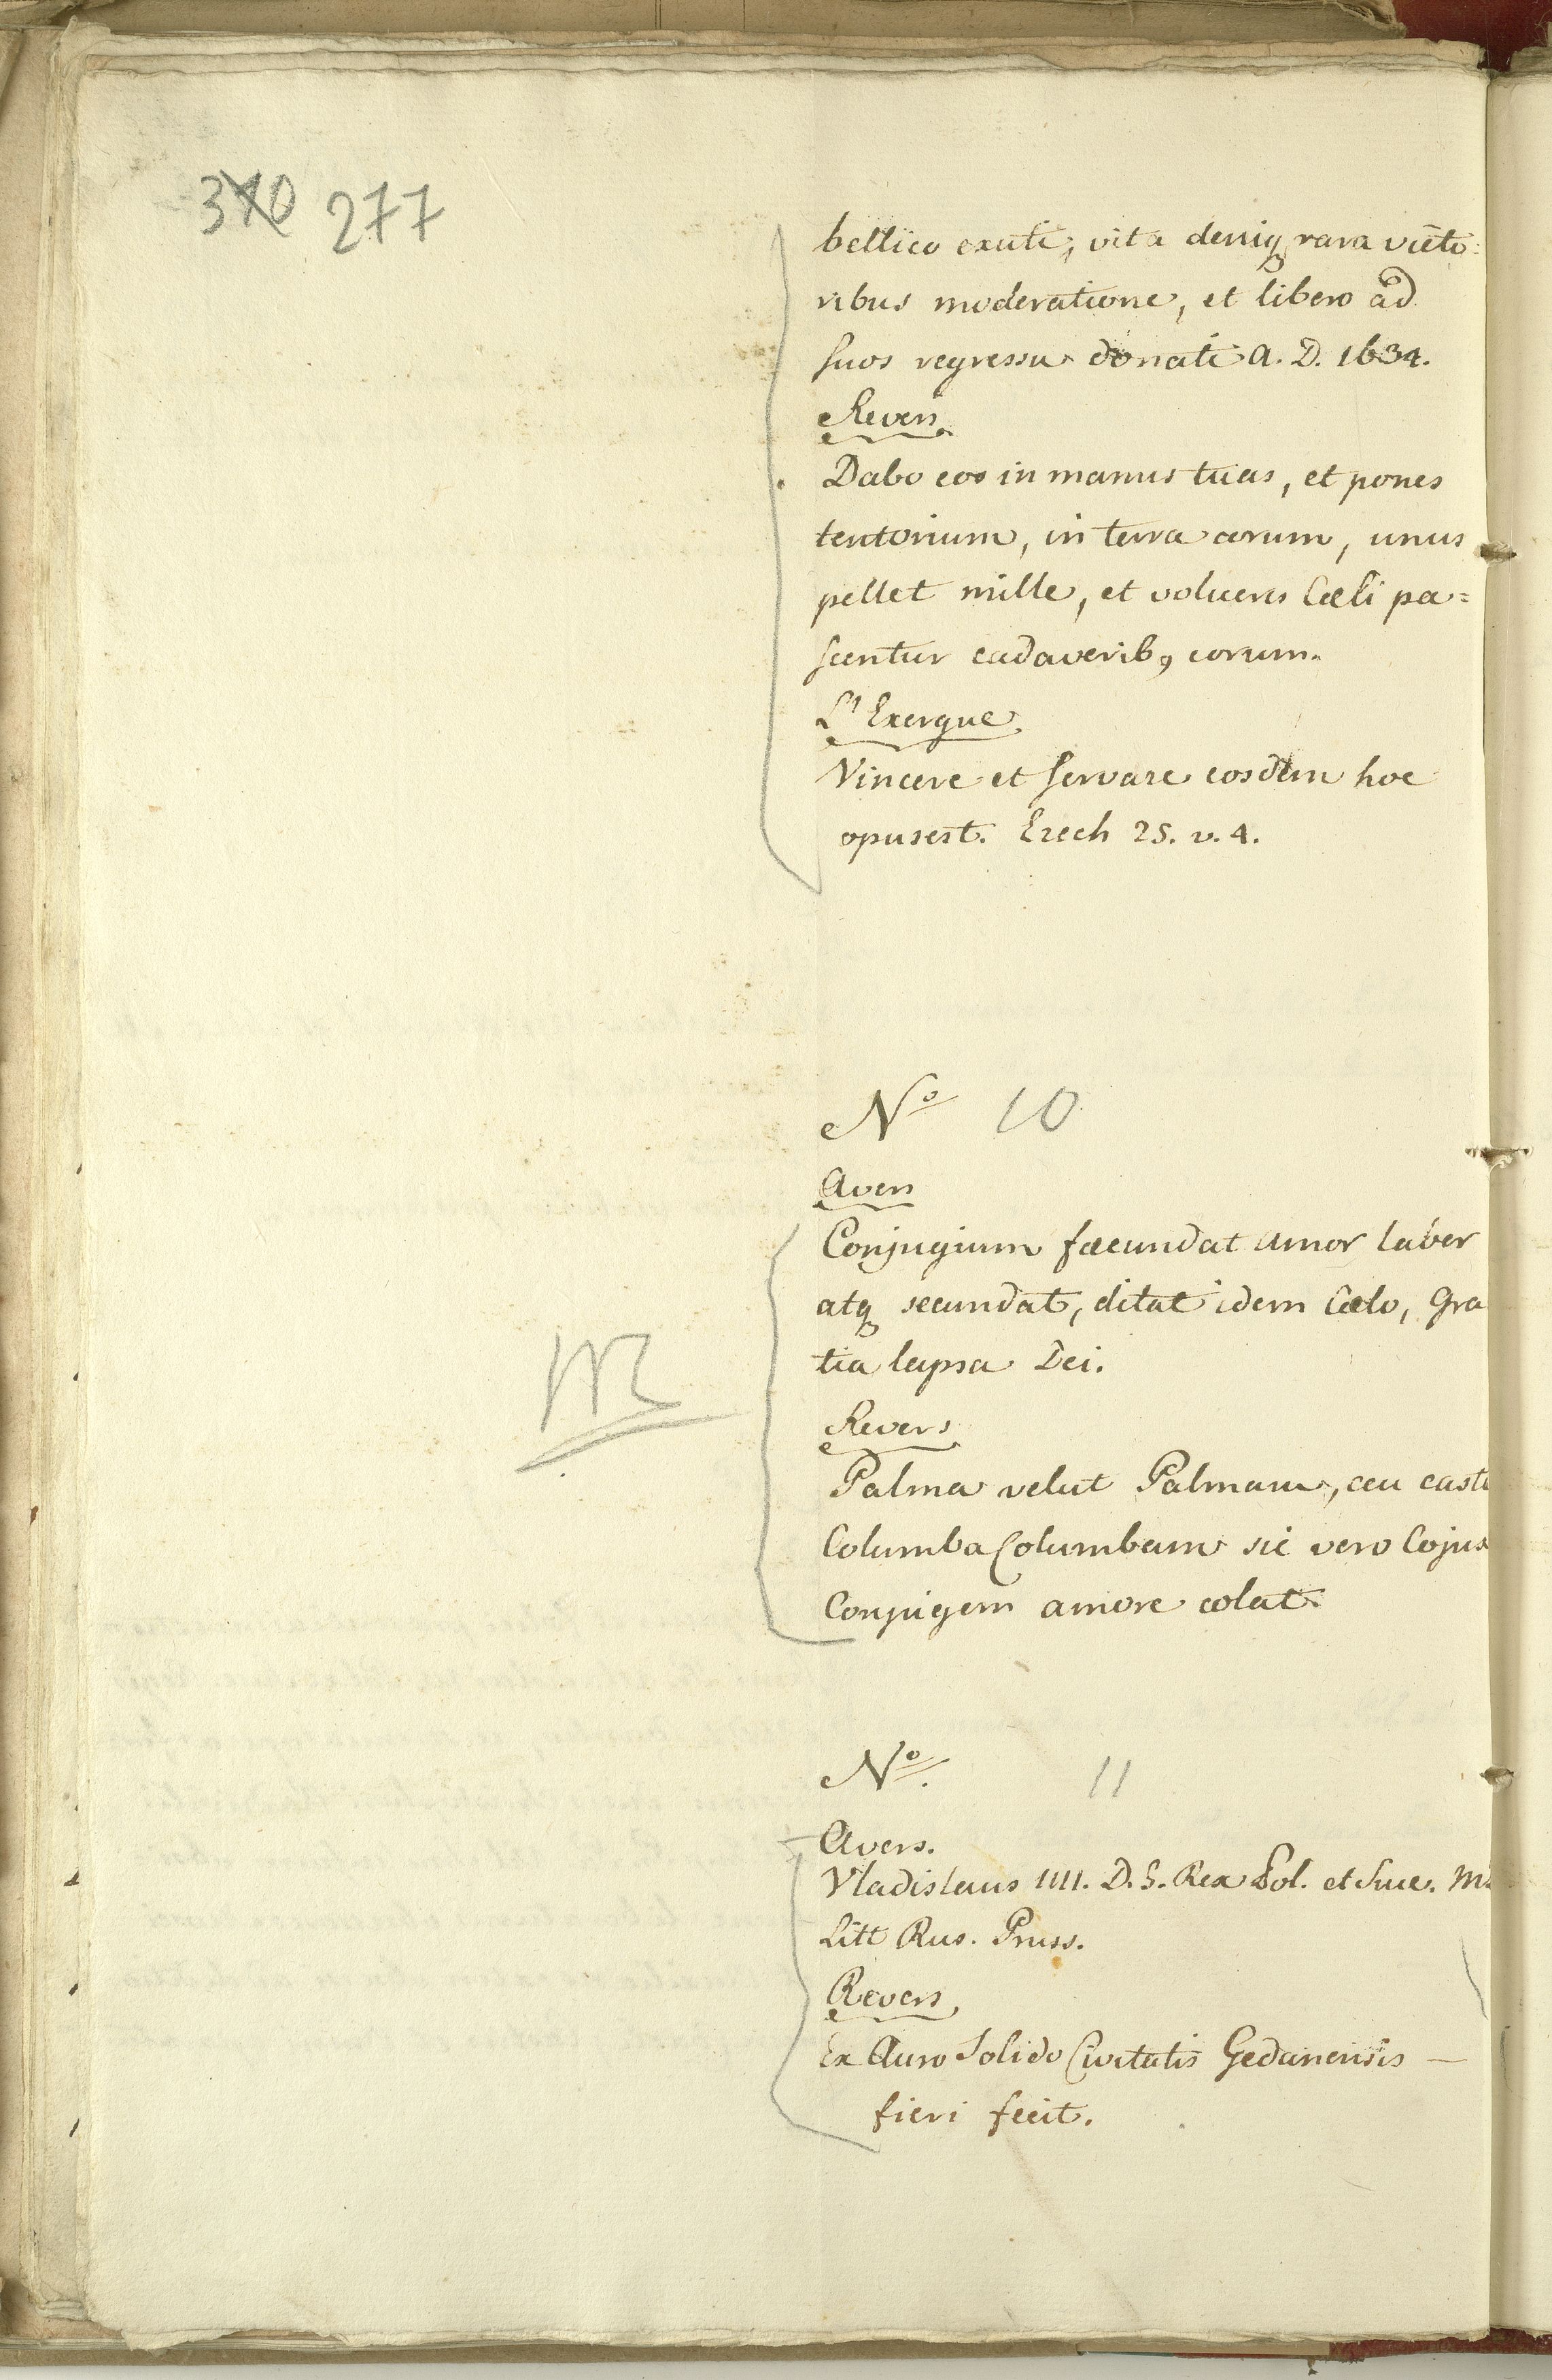 370 277
bellico exuti, vita deniq rara victo:
ribus moderatione, et libero ad
suos regressu donati A. D. 1634.
Revers
Dabo eos in manus tuas, et pones
tentorium, in terra eorum, unus
pellet mille, et volucres Cœli pa=
scentur cadaverib9 eorum.
L'Exergue
Vincere et servare eosdem hoc
opusest. Ezech 25. v. 4.
No 10
Avers
Conjugium fæcundat amor labor
atq secundat, ditat idem Cœlo, Gra
tia lapsa Dei.
Revers
Palma velut Palmam, ceu casta
Columba Columbam sic vero Cojux
Conjugem amore colat.
No. 11
Avers.
Vladislaus IIII. D. G. Rex Pol. et Suec. M.
Litt Rus. Pruss.
Revers
Ex Auro Solido Civitatis Gedanensis —
fieri fecit.